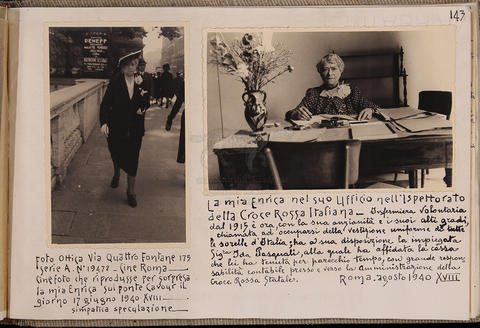 143
DENEFF
Foto Ottica Via Quattro Fontane 175
Serie A. N° 19472 - Cine Roma -
Cinefoto che riprodusse per sorpresa
la mia Enrica sul ponte Cavour il
giorno 17 giugno 1940 XVIII -
simpatica speculazione
La mia Enrica nel suo Ufficio nell'Ispettorato
della Croce Rossa Italiana - Infermiera Volontaria
dal 1915 è ora, con la sua anzianità e i suoi alti gradi
chiamata ad occuparsi della vestizione uniforme di tutte
le sorelle d'Italia; ha a sua disposizione la impiegata
Sigra Ida Pasquali, alla quale ha affidata la cassa
che lei ha tenuta per parecchio tempo, con grande respon
sabilità contabile presso e verso la Amministrazione della
Croce Rossa Statale.
Roma. agosto 1940 XVIII